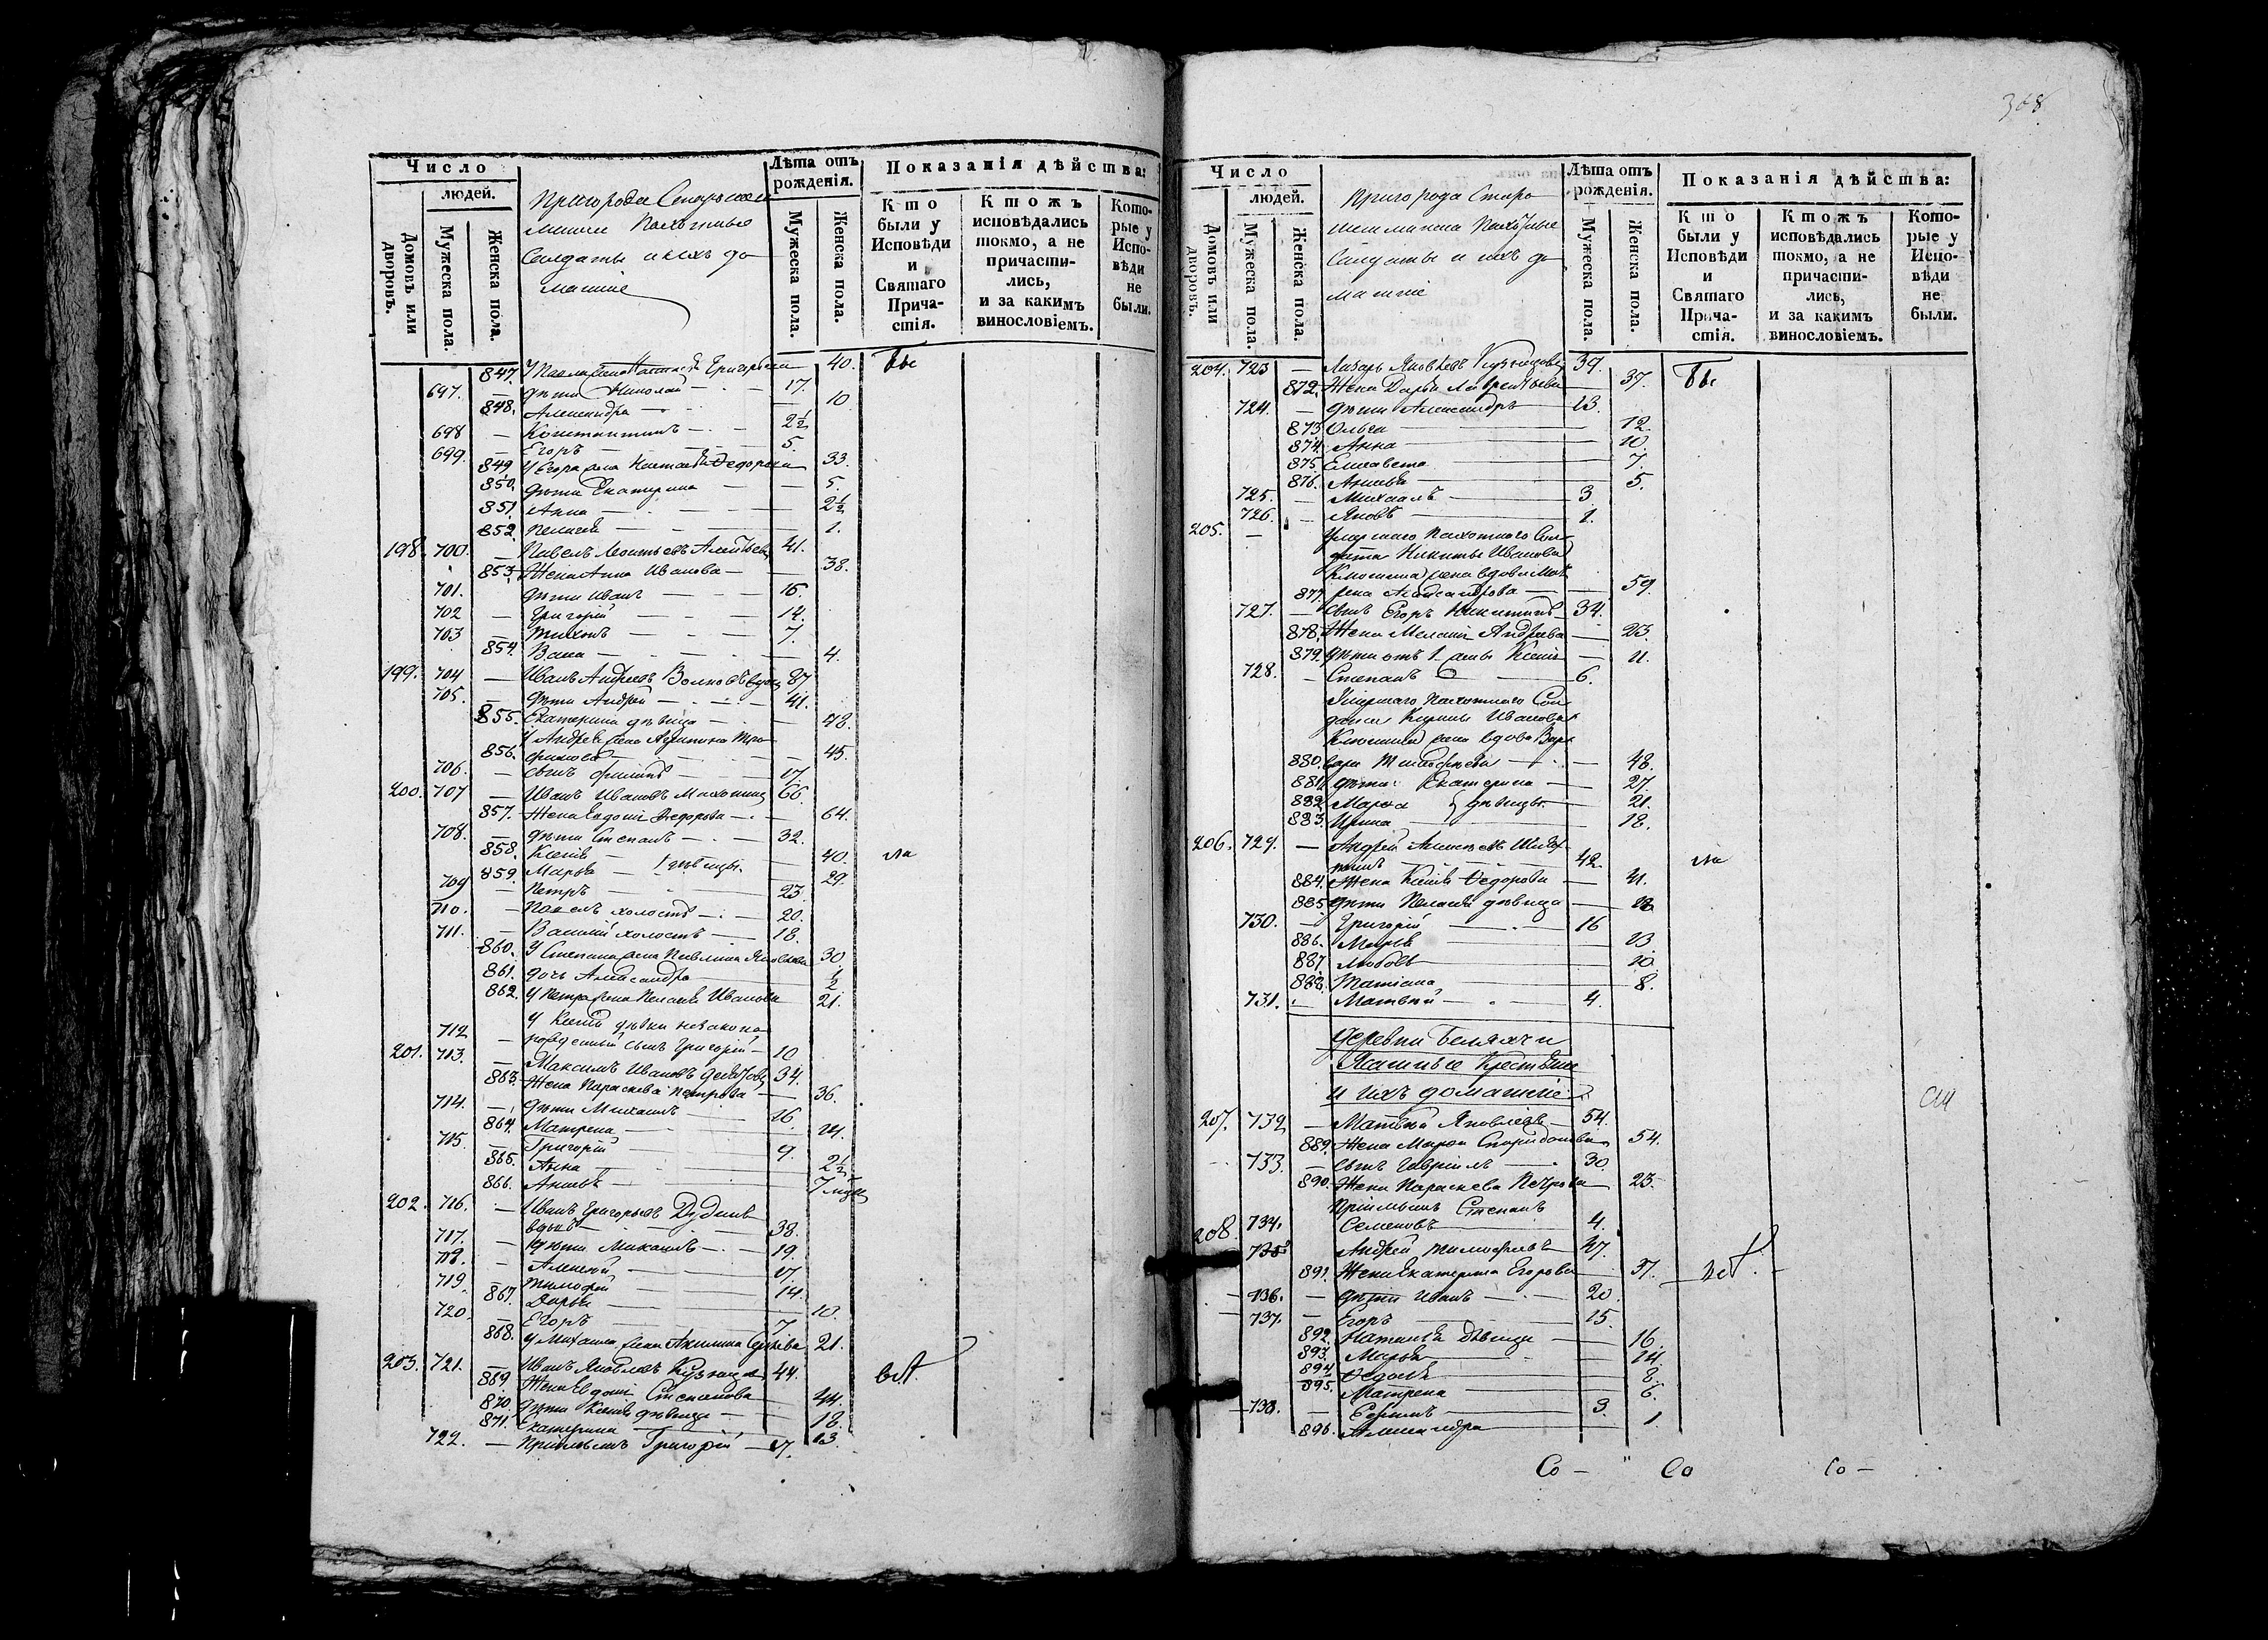 Число
людей.
Домовъ или дворовъ.
Мужеска пола.
Женска пола.
Пригорода Старошеш
минска Пахотные
Солдаты и ихъ до
машніе
Лѣта отъ рожденія.
Мужеска пола.
Женска пола.
Показанія дѣйства:
Кто были у Исповѣди и Святаго Причастія.
Ктожъ исповѣдались токмо, а не причастились, и за какимъ винословіемъ.
Которые у Исповѣди не были.
847. У Павла жена Настасья Григорьева 40. бы
697. — дѣти Николай — 17.
848. Александра — 10
698 — Константинъ — 2½
699. — Егоръ — 5.
849. У Егора жена Настасья Ѳедорова 33.
850. дѣти Екатерина — 5.
851. Анна — 2½
852. Пелагея — 1.
198. 700. — Павелъ Леонтьевъ 41.
853. Жена Анна Иванова — 38.
701. дѣти Иванъ — 16.
702 — Григорій — 14.
703 — Тихонъ — 7.
854. Васса — 4.
199. 704 — Иванъ Андреевъ Волковъ вдовъ 87
705. — дѣти Андрей — 41.
855. Екатерина дѣвица — 48.
У Андрея жена Агрипина Тро
856. фимова — 45.
706. — сынъ Филипъ — 17.
200. 707 — Иванъ Ивановъ 66.
857. Жена Евдокія Ѳедорова — 64.
708. — дѣти Степанъ — 32.
858. Ксенія — 40. ли
859. Марья — } дѣвицы. 29.
709 — Петръ — 23.
710. — Павелъ холостъ — 20.
711. — Василій холостъ — 18.
860. У Степана жена Павлина Яковлева 30
861. дочь Александра ½
862. У Петра жена Пелагея Иванова 21.
У Ксеніи дѣвки незаконно
712 — рожденный сынъ Григорій — 10
201. 713. — Максимъ Ивановъ 34.
863. Жена Параскева Петрова — 36.
714. — дѣти Михаилъ — 16.
864. Матрена — 14.
715. — Григорій — 9.
865. Анна — 2½
866. Анисья — 7 мцъ
202. 716. — Иванъ Григорьевъ Дудинъ
вдовъ — 38.
717. — дѣти Михаилъ — 19.
718. — Алексѣй — 17.
719. — Тимофей — 14.
867. Дарья — 10.
720. — Егоръ — 7.
868. У Михаила жена Акилина Сергѣева 21.
203. 721. — Иванъ Яковлевъ Кузнецовъ 44. всѣ.
869 Жена Евдокія Степанова 44.
870. дѣти Ксенія дѣвица — 18.
871. Екатерина — 13.
722. — Пріемышъ Григорій — 17.
368
Число
людей.
Домовъ или дворовъ.
Мужеска пола.
Женска пола.
Пригорода Старо
шешминска Пахотные
Солдаты и ихъ до
машніе
Лѣта отъ рожденія.
Мужеска пола.
Женска пола.
Показанія дѣйства:
Кто были у Исповѣди и Святаго Причастія.
Ктожъ исповѣдались токмо, а не причастились, и за какимъ винословіемъ.
Которые у Исповѣди не были.
204. 723 — Лазарь Яковлевъ Кузнецовъ 39. бы
872. Жена Дарья Лаврентьева — 37.
724. — дѣти Александръ — 13.
873 Ольга — 12.
874. Анна — 10.
875. Елисавета — 7.
876. Анисья — 5.
725. — Михаилъ — 3
726. — Яковъ — 1.
205. — Умершаго Пахотного Сол
дата Никиты Иванова
Клюшина жена вдова Мат
877. рена Александрова — 59.
727. — сынъ Егоръ Никитинъ 34.
878. Жена Меланія Андреева — 23.
879. дѣти отъ 1. жены Ксенія — 11.
728. — Степанъ — 6.
Умершаго Пахотного Сол
дата Кузмы Иванова
Клюшина жена вдова Вар
880. вара Тимофеева — 48.
881. дѣти: Екатерина — 27.
882. Марѳа } дѣвицы. — 21.
883. Ирина — 18.
206. 729. — Андрей Алексѣевъ
42. ли
884. Жена Ксенія Ѳедорова — 41.
885 дѣти Пелагея дѣвица — 18
730. — Григорій — 16
886. Марья — 13.
887 Любовь — 10.
888. Татіана — 8.
731. — Матвей — 4.
Деревни Беляхчи
Ясашные Крестьяне
и ихъ домашніе
207. 732 — Матвей Яковлевъ — 54.
889. Жена Марѳа Спиридонова 54.
733. — сынъ Гаврилъ — 30.
890. Жена Параскева Петрова 23.
Пріемышъ Степанъ
734. Семеновъ — 4.
208. 735 Андрей Тимофеевъ 47.
891. Жена Екатерина Егорова 37. всѣ.
736. — дѣти Иванъ — 20.
737. — Егоръ — 15.
892. Наталья дѣвица — 16.
893. Марья — 14.
894 Ѳедосья — 8.
895. Матрена — 6.
738. — Ефимъ — 3.
896. Александра — 1.
Со — " Со Со —